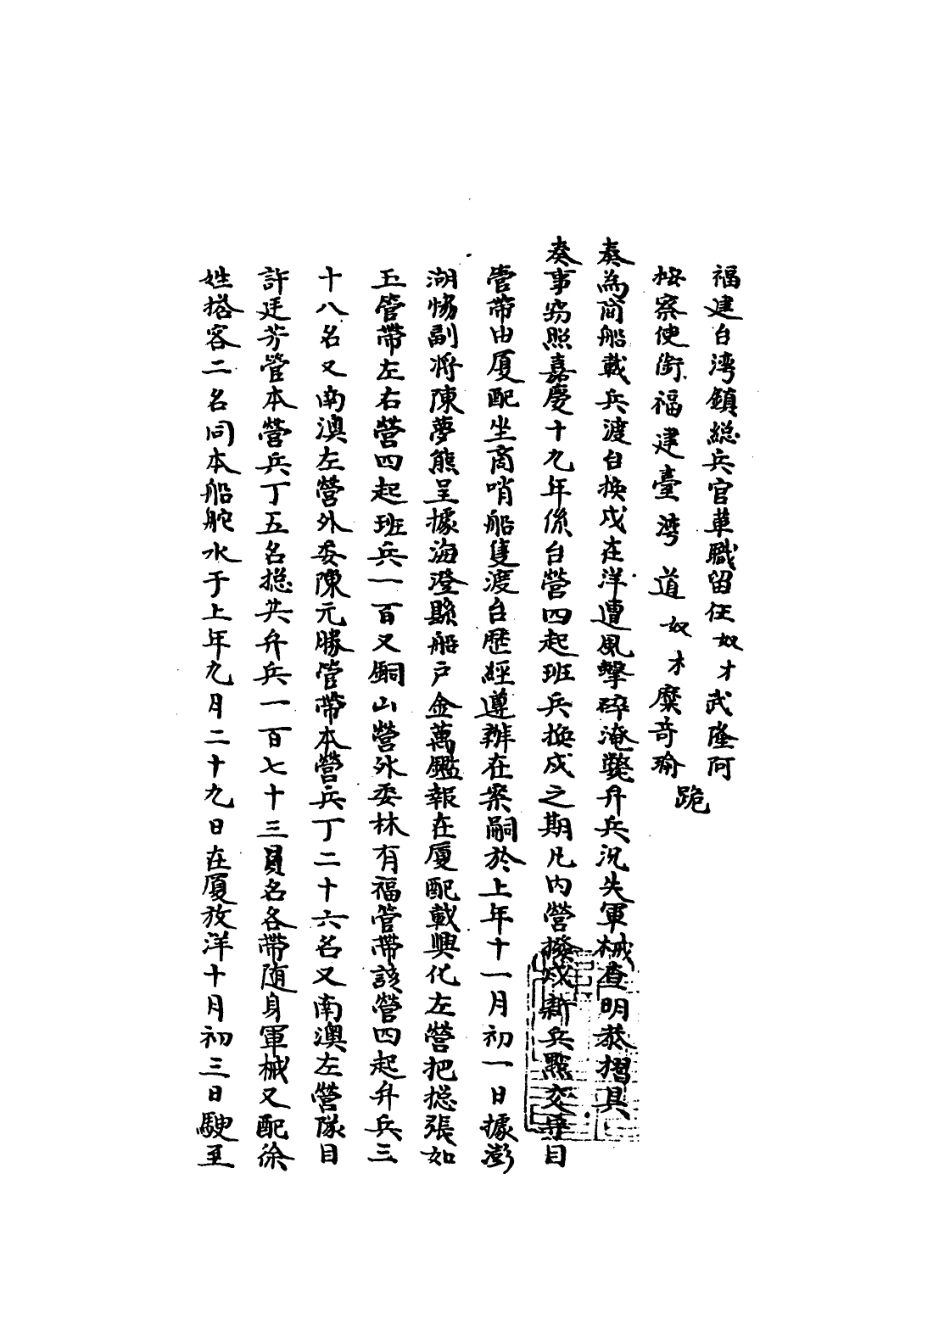 福建台湾鎮総兵官革職留任奴才武隆阿
按察使銜福建臺湾道奴才糜奇瑜
跪
奏為商船載兵渡台換戍在洋遭風擊碎淹斃弁兵沉失軍械查明恭摺具
奏事窃照嘉慶十九年係台營四起班兵換戍之期凡内營撥戍新兵點交弁目
管帶由厦配坐商哨船隻渡台歷經遵辦在案嗣於上年十一月初一日據澎
湖協副將陳夢熊呈據海澄縣船户金萬鑑報在厦配載興化左營把捴張如
玉管帶左右營四起班兵一百又銅山營外委林有福管帶該營四起弁兵三
十八名又南澳左營外委陳元勝管帶本營兵丁二十六名又南澳左營隊目
許廷芳管本營兵丁五名捴共弁兵一百七十三員名各帶随身軍械又配徐
姓搭客二名同本船舵水于上年九月二十九日在厦放洋十月初三日駛至